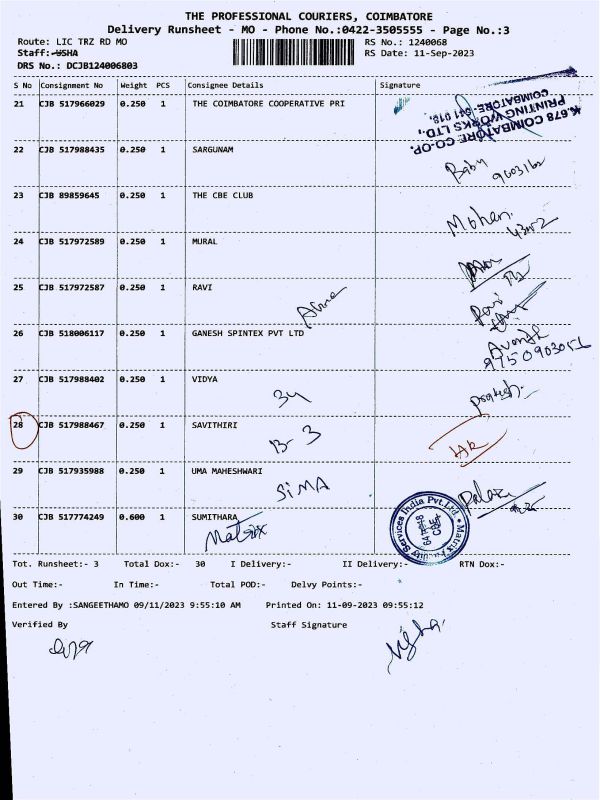 THE PROFESSIONAL COURIERS, COIMBATORE
Delivery Runsheet - MO - Phone No.:0422-3505555 - Page No.:3
Route: LIC TRZ RD MO RS No.: 1240068
Staff:-USHA RS Date: 11-Sep-2023
DRS No.: DCJB124006803
S No Consignment No Weight PCS Consignee Details Signature
21 CJB 517966029 0.250 1 THE COIMBATORE COOPERATIVE PRI
K.678 COIMBATORE CO-OP.
PRINTING WORKS LTD.,
COIMBATORE-641 018.
22 CJB 517988435 0.250 1 SARGUNAM
Baby
23 CJB 89859645 0.250 1 THE CBE CLUB
Mohan
24 CJB 517972589 0.250 1 MURAL
25 CJB 517972587 0.250 1 RAVI
Ravi
26 CJB 518006117 0.250 1 GANESH SPINTEX PVT LTD
27 CJB 517988402 0.250 1 VIDYA
28 CJB 517988467 0.250 1 SAVITHIRI
B-3
29 CJB 517935988 0.250 1 UMA MAHESHWARI
SiMA
30 CJB 517774249 0.600 1 SUMITHARA
Matrix
Matrix Facility Services India Pvt.Ltd
Tot. Runsheet:- 3 Total Dox:- 30 I Delivery:- II Delivery:- RTN Dox:-
Out Time:- In Time:- Total POD:- Delvy Points:-
Entered By :SANGEETHAMO 09/11/2023 9:55:10 AM Printed On: 11-09-2023 09:55:12
Verified By Staff Signature